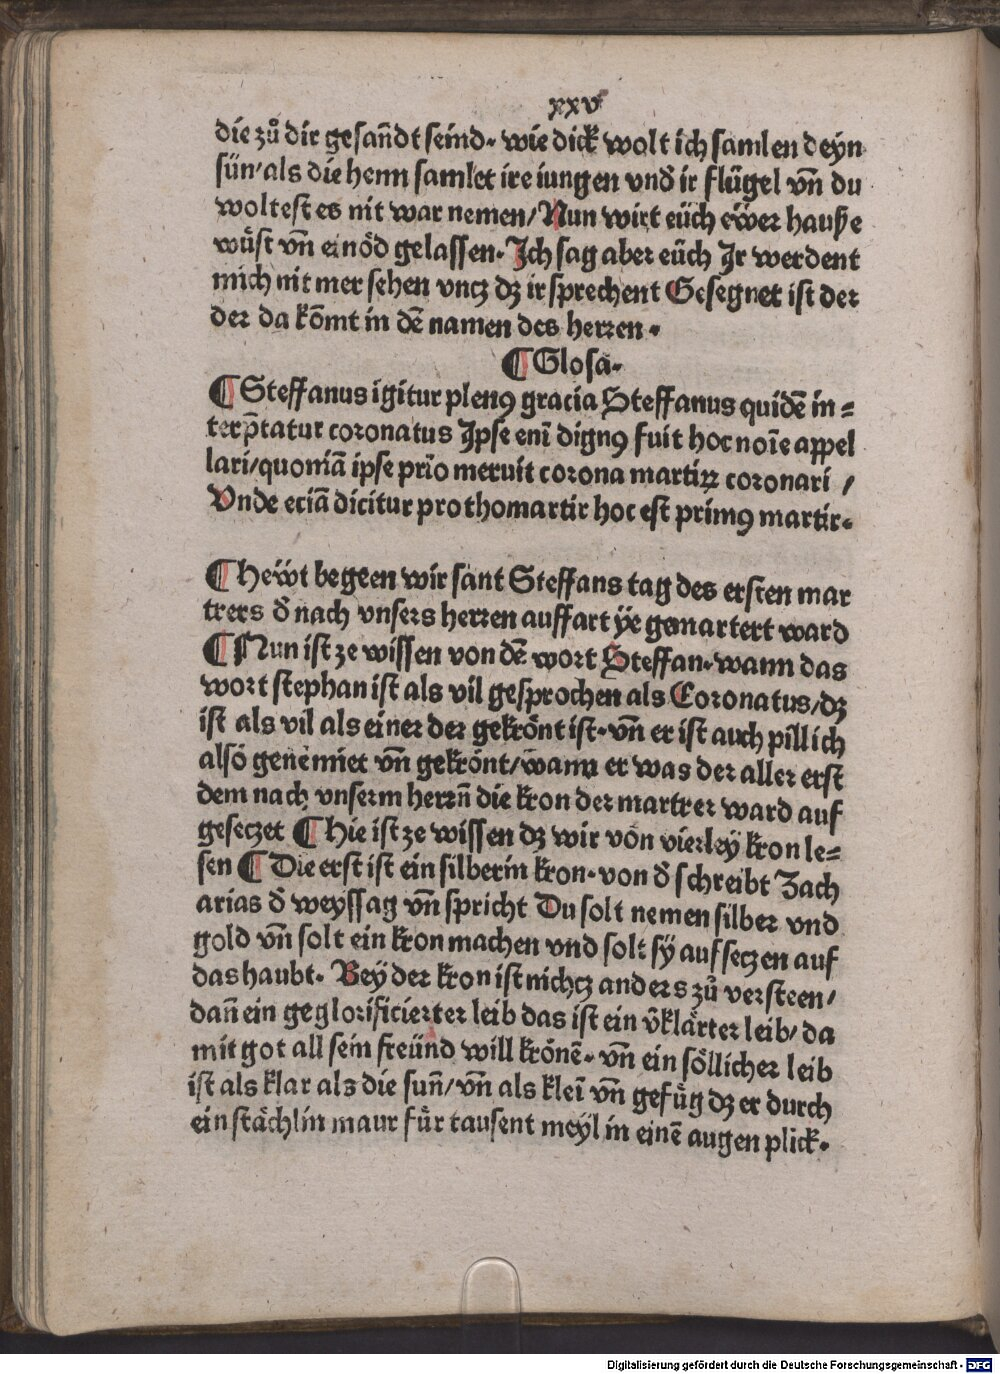 xxv
die zů dir gesañdt seind. wie dick wolt ich samlen deyn
sün/als die henn samlet ire iungen vnd ir flügel vñ du
woltest es nit war nemen/Nun wirt eüch eẅer hauße
wuͤst vñ einoͤd gelassen. Ich sag aber eüch Ir werdent
mich nit mer sehen vncz dz ir sprechent Gesegnet ist der
der da kõmt in dẽ namen des herren.
¶ Glosa.
¶ Steffanus igitur plenꝰ gracia Steffanus quidẽ in=
terp̃tatur coronatus Ipse enĩ dignꝰ fuit hoc noĩe appel
lari/quoniã ipse prĩo meruit corona martiꝝ coronari /
Vnde eciã dicitur prothomartir hoc est primꝰ martir.
¶ heẅt begeen wir sant Steffans tag des ersten mar
trers đ nach vnsers herren auffart ÿe gemartert ward
¶ Nun ist ze wissen von dẽ wort Steffan. wann das
wort stephan ist als vil gesprochen als Coronatus/dz
ist als vil als einer der gekroͤnt ist. vñ er ist auch pillich
also genennet vñ gekroͤnt/wann er was der aller erst
dem nach vnserm herrñ die kron der martrer ward auf
geseczet ¶ hie ist ze wissen dz wir von vierley kron le=
sen ¶ Die erst ist ein silberin kron. von đ schreibt Zach
arias đ weyssag vñ spricht Du solt nemen silber vnd
gold vñ solt ein kron machen vnd solt sÿ aufseczen auf
das haubt. Bey der kron ist nichcz anders zů versteen/
dañ ein geglorificierter leib das ist ein v̄klaͤrter leib/da
mit got all sein freünd will kroͤnẽ. vñ ein soͤllicher leib
ist als klar als die suñ/vñ als kleĩ vñ gefuͤg dz er durch
ein staͤchlin maur fuͤr tausent meyl in einẽ augen plick.
Digitalisierung gefördert durch die Deutsche Forschungsgemeinschaft - DFG